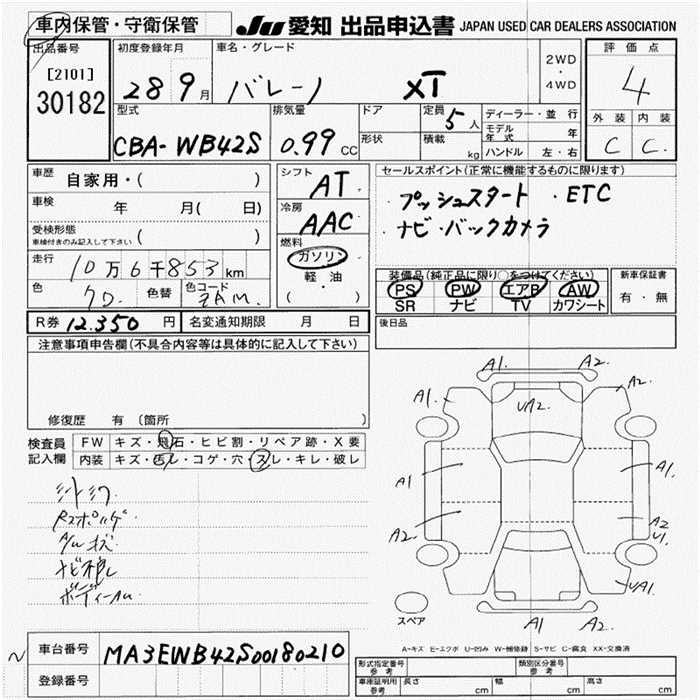 車内保管・守衛保管
JU 愛知 出品申込書 JAPAN USED CAR DEALERS ASSOCIATION
出品番号
[2101]
30182
初度登録年月
28 9月
車名・グレード
バレーノ XT
2WD
・
4WD
評価点
4
外装 内装
C C
型式
CBA-WB42S
排気量
0.99 CC
ドア
形状
定員 5人
積載 kg
ディーラー・並行
モデル年式 年
ハンドル 左・右
車歴 自家用・( )
車検 年 月( 日)
受検形態
車検付きのみ記入して下さい ( )
走行 10万6千853km
色 色替 色コード
ZAM.
シフト AT
冷房 AAC
燃料
ガソリン
軽油
・
( )
セールスポイント(正常に機能するものに限ります)
・プッシュスタート ・ETC
・ナビ・バックカメラ
装備品(純正品に限り○をつけてください)
PS PW エアB AW
SR ナビ TV カワシート
新車保証書
有・無
R券 12.350 円 名変通知期限 月 日
後日品
注意事項申告欄(不具合内容等は具体的に記入して下さい)
修復歴 有 〔箇所 〕
検査員
記入欄
FW キズ・飛石・ヒビ割・リペア跡・X要
内装 キズ・汚レ・コゲ・穴・スレ・キレ・破レ
ナビ押し
A1. A2.
A1. A2.
UA2.
A1 A1.
A2. A2
U1.
UA1.
A1 A2.
スペア
A-キズ E-エクボ U-凹み W-補修跡 S-サビ C-腐食 XX-交換済
車台番号 MA3EWB42S00180210
登録番号
形式指定番号
参考
類別区分番号
参考
車庫証明用
参考
長さ cm 幅 cm 高さ cm